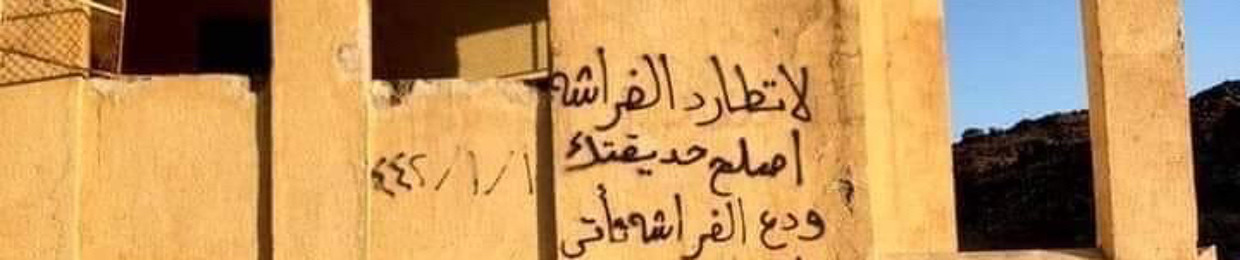 لا تطارد الفراشه
اصلح حديقتك
ودع الفراشه تأتي
١/١/٤٤٢